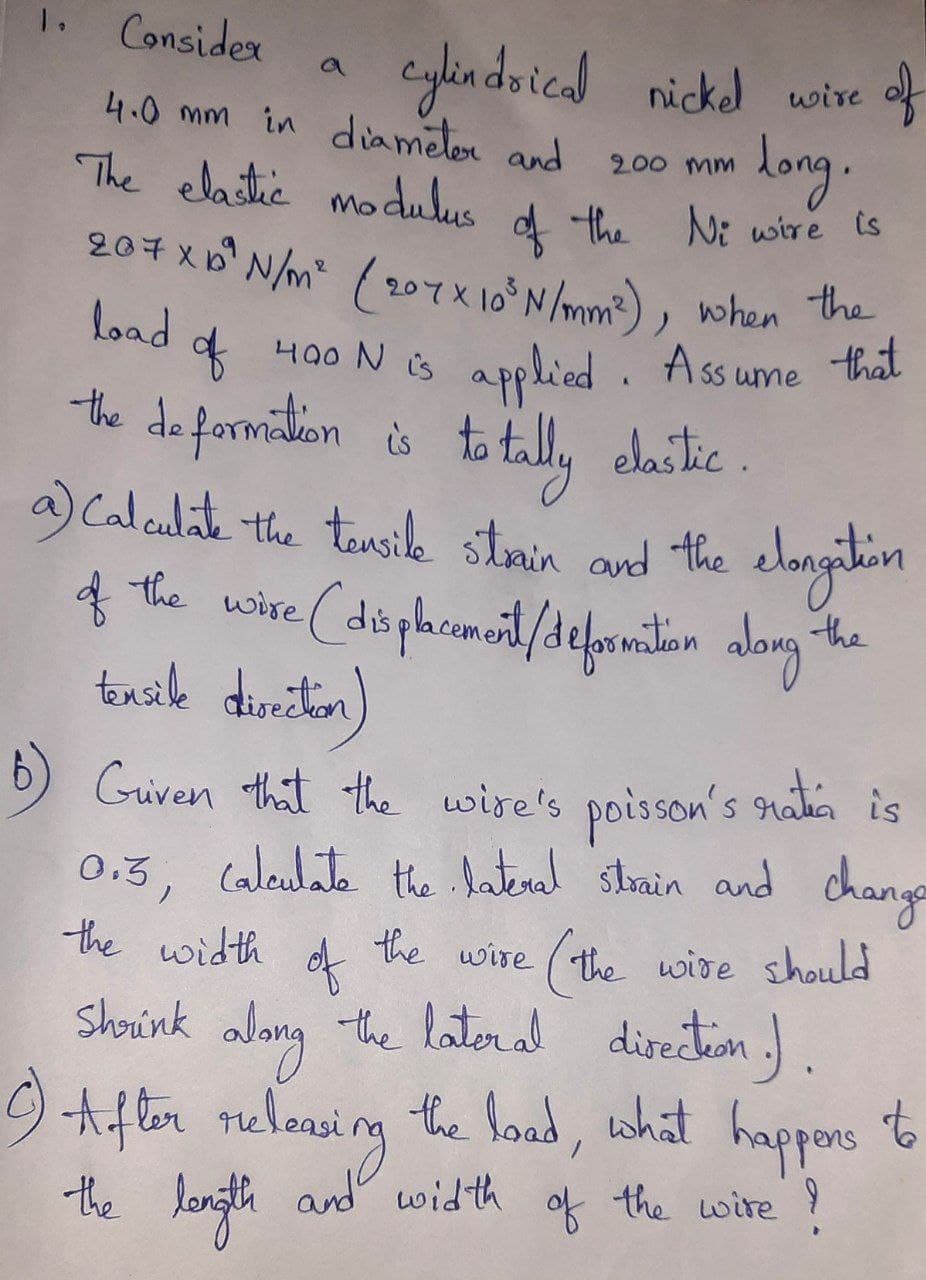 1. Consider a cylindrical nickel wire of
4.0 mm in diameter and 200 mm long.
The elastic modulus of the Ni wire is
207 x 10⁹ N/m² (207 x 10³ N/mm²), when the
load of 400 N is applied. Assume that
the deformation is totally elastic.
a) Calculate the tensile strain and the elongation
of the wire (displacement/deformation along the
tensile direction)
b) Given that the wire's poisson's ratio is
0.3, calculate the lateral strain and change
the width of the wire (the wire should
shrink along the lateral direction.).
c) After releasing the load, what happens to
the length and width of the wire?